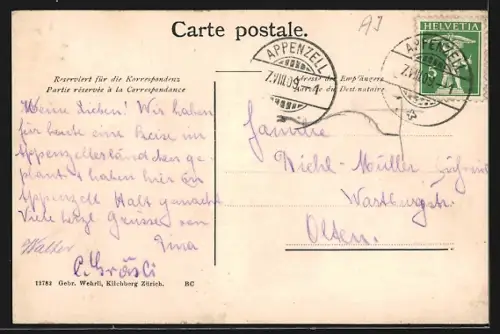 Carte postale.
AJ
HELVETIA
APPENZELL
7.VIII.09
APPENZELL
7.VIII.09
Reserviert für die Korrespondenz
Partie réservée à la Correspondance
Adresse des Empfängers
du Destinataire
Meine Lieben! Wir haben
für heute eine Reise im
Appenzellerländchen ge-
plant & haben hier in
Appenzell Halt gemacht
Viele herzl. Grüsse von
Walter Tina
Familie
Müller
Olten.
13783 Gebr. Wehrli, Kilchberg Zürich. BC